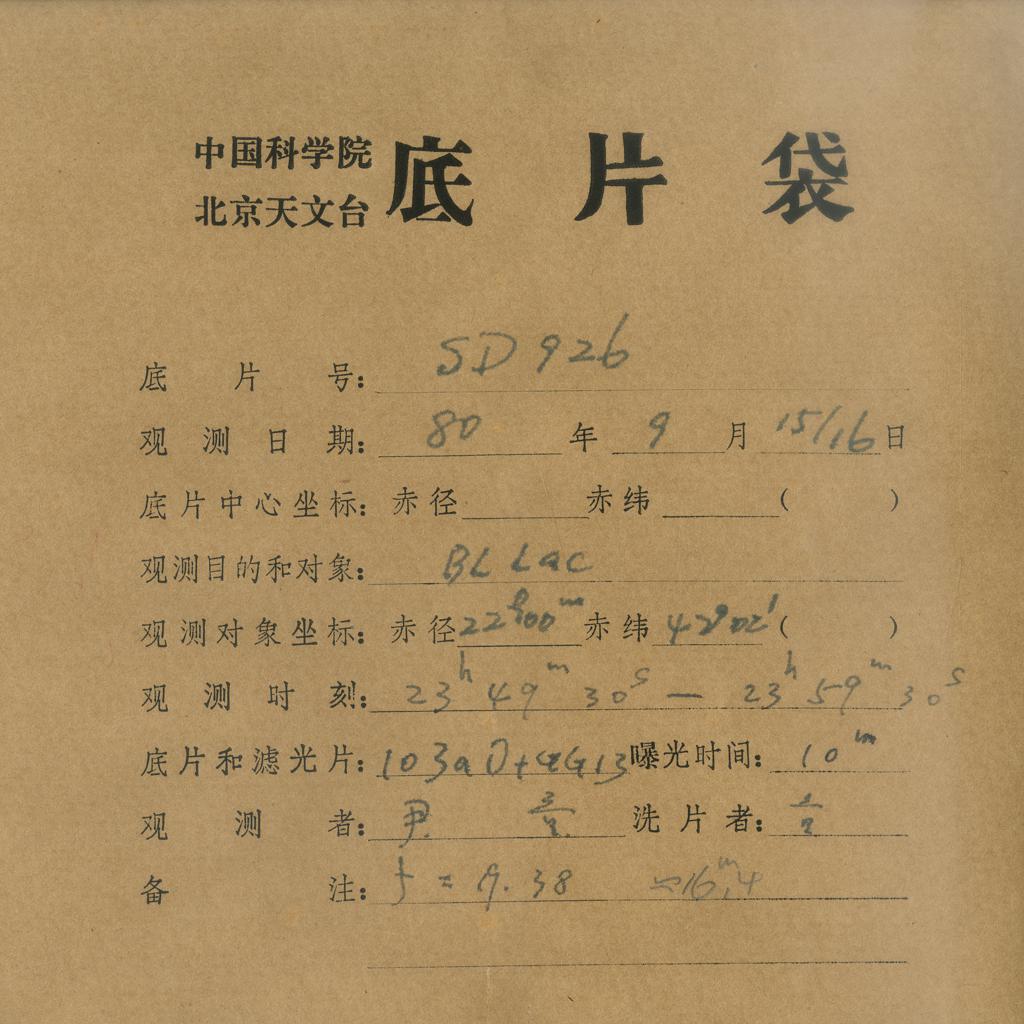 中国科学院
北京天文台
底片袋
底片号: SD 926
观测日期: 80 年 9 月 15/16 日
底片中心坐标: 赤径 赤纬 ( )
观测目的和对象: BL Lac
观测对象坐标: 赤径 22h00m 赤纬 42°02′ ( )
观测时刻: 23h 49m 30s — 23h 59m 30s
底片和滤光片: 103aO+GG13 曝光时间: 10m
观测者: 尹 洗片者:
备注: f = 9.38 16m.4